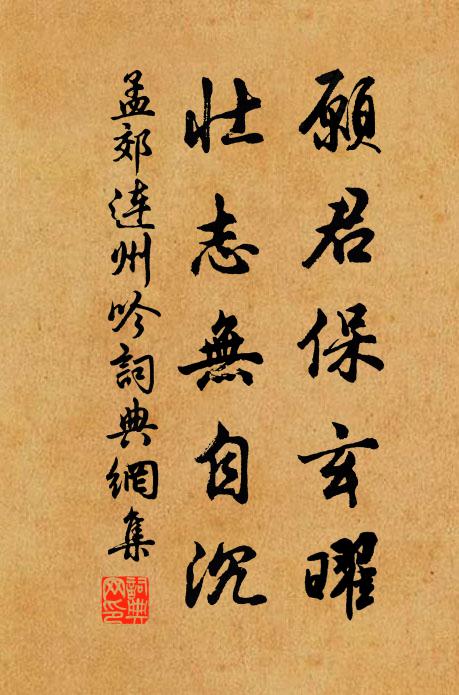 願君保玄曜
壯志無自沉
孟郊連州吟詞典網集
詞典網印